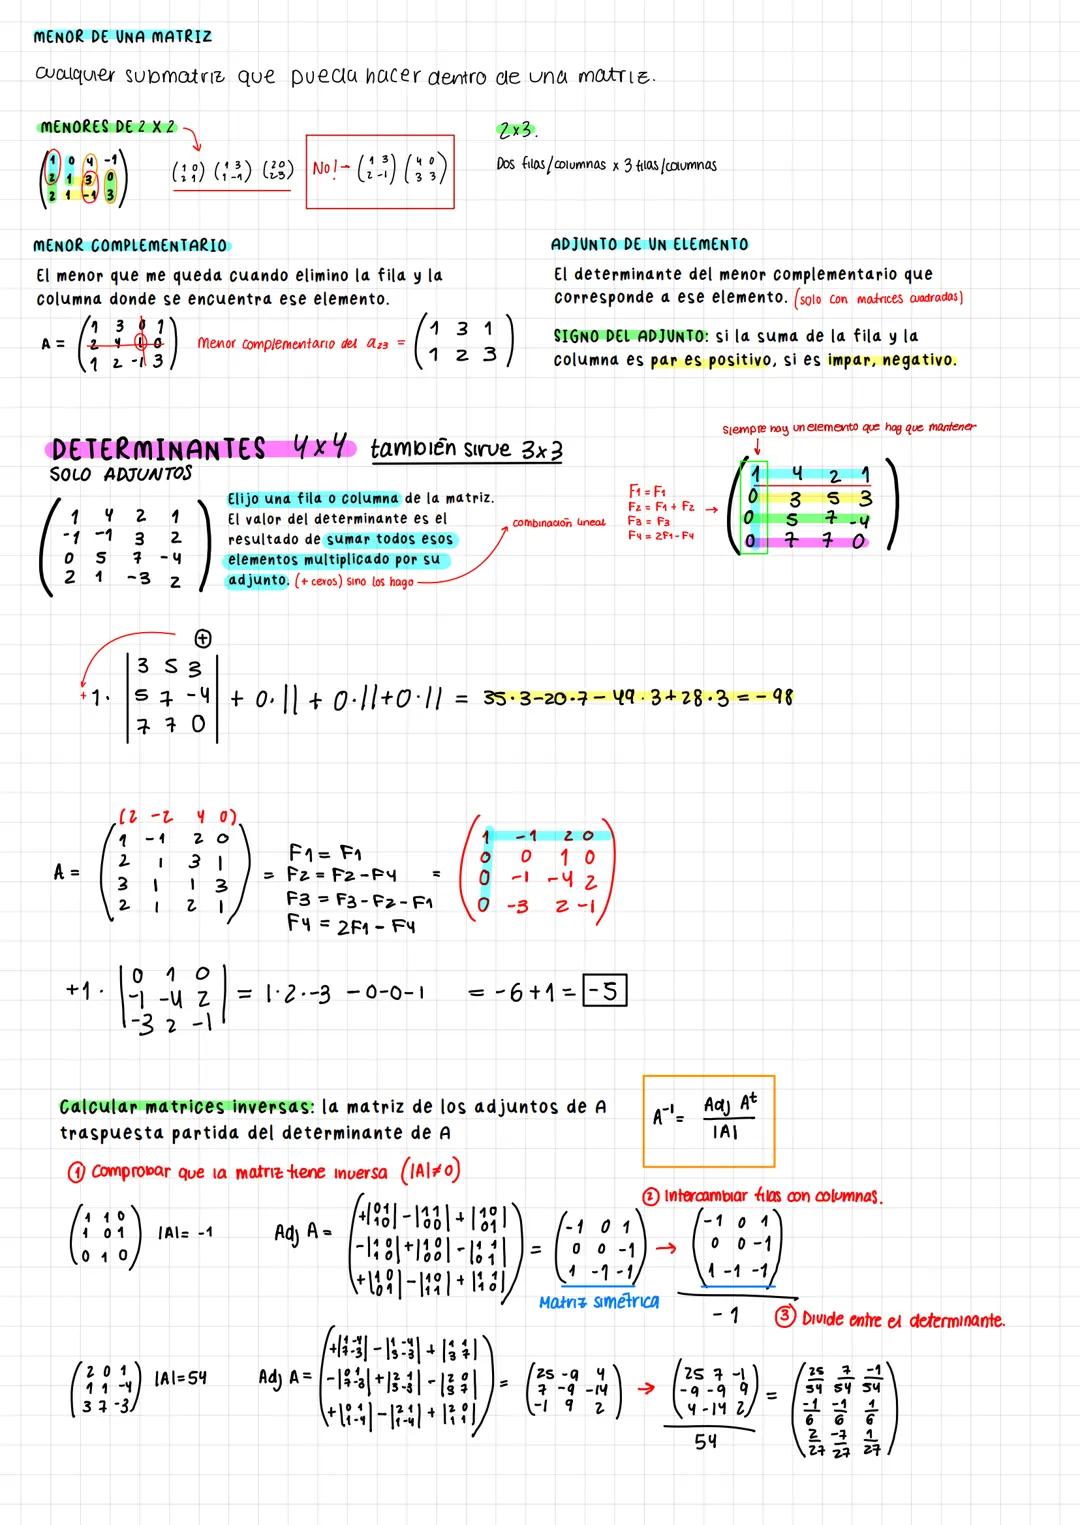 MENOR DE UNA MATRIZ
cualquier submatriz que pueda hacer dentro de una matriz.
MENORES DE 2 X 2
2x3.
Dos filas/columnas x 3 filas/columnas
1 0 4 -1
2 1 3 0
2 1 -1 3
(1 0 / 2 1) (1 3 / 1 -1) (2 0 / 2 3)
No! - (1 3 / 2 -1) (4 0 / 3 3)
MENOR COMPLEMENTARIO
El menor que me queda cuando elimino la fila y la
columna donde se encuentra ese elemento.
A =
1 3 0 1
2 4 1 0
1 2 -1 3
Menor complementario del a23 =
1 3 1
1 2 3
ADJUNTO DE UN ELEMENTO
El determinante del menor complementario que
corresponde a ese elemento. (solo con matrices cuadradas)
SIGNO DEL ADJUNTO: si la suma de la fila y la
columna es par es positivo, si es impar, negativo.
DETERMINANTES 4x4 también sirve 3x3
SOLO ADJUNTOS
1 4 2 1
-1 -1 3 2
0 5 7 -4
2 1 -3 2
Elijo una fila o columna de la matriz.
El valor del determinante es el
resultado de sumar todos esos
elementos multiplicado por su
adjunto. (+ ceros) sino los hago
combinación lineal
F1 = F1
F2 = F1 + F2
F3 = F3
F4 = 2F1 - F4
Siempre hay un elemento que hay que mantener
1 4 2 1
0 3 5 3
0 5 7 -4
0 7 7 0
+
+1 ·
3 5 3
5 7 -4
7 7 0
+ 0·|| + 0·|| + 0·|| = 35·3-20·7-49·3+28·3 = -98
(2 -2 4 0)
A =
1 -1 2 0
2 1 3 1
3 1 1 3
2 1 2 1
= F1 = F1
F2 = F2 - F4
F3 = F3 - F2 - F1
F4 = 2F1 - F4
=
1 -1 2 0
0 0 1 0
0 -1 -4 2
0 -3 2 -1
+1 ·
0 1 0
-1 -4 2
-3 2 -1
= 1·2·-3 -0-0-1 = -6+1 = -5
Calcular matrices inversas: la matriz de los adjuntos de A
traspuesta partida del determinante de A
A-1 = Adj At / |A|
① Comprobar que la matriz tiene inversa (|A|≠0)
② Intercambiar filas con columnas.
1 1 0
1 0 1
0 1 0
|A| = -1
Adj A =
+|0 1 / 1 0| -|1 1 / 0 0| +|1 0 / 0 1|
-|1 0 / 1 0| +|1 0 / 0 0| -|1 1 / 0 1|
+|1 0 / 0 1| -|1 0 / 1 1| +|1 1 / 1 0|
=
-1 0 1
0 0 -1
1 -1 -1
Matriz simétrica
→
-1 0 1
0 0 -1
1 -1 -1
-1
③ Divide entre el determinante.
2 0 1
1 1 -4
3 7 -3
|A| = 54
Adj A =
+|1 -4 / 7 -3| -|1 -4 / 3 -3| +|1 1 / 3 7|
-|0 1 / 7 -3| +|2 1 / 3 -3| -|2 0 / 3 7|
+|0 1 / 1 -4| -|2 1 / 1 -4| +|2 0 / 1 1|
=
25 -9 4
7 -9 -14
-1 9 2
→
25 7 -1
-9 -9 9
4 -14 2
54
=
25/54 7/54 -1/54
-1/6 -1/6 1/6
2/27 -7/27 1/27